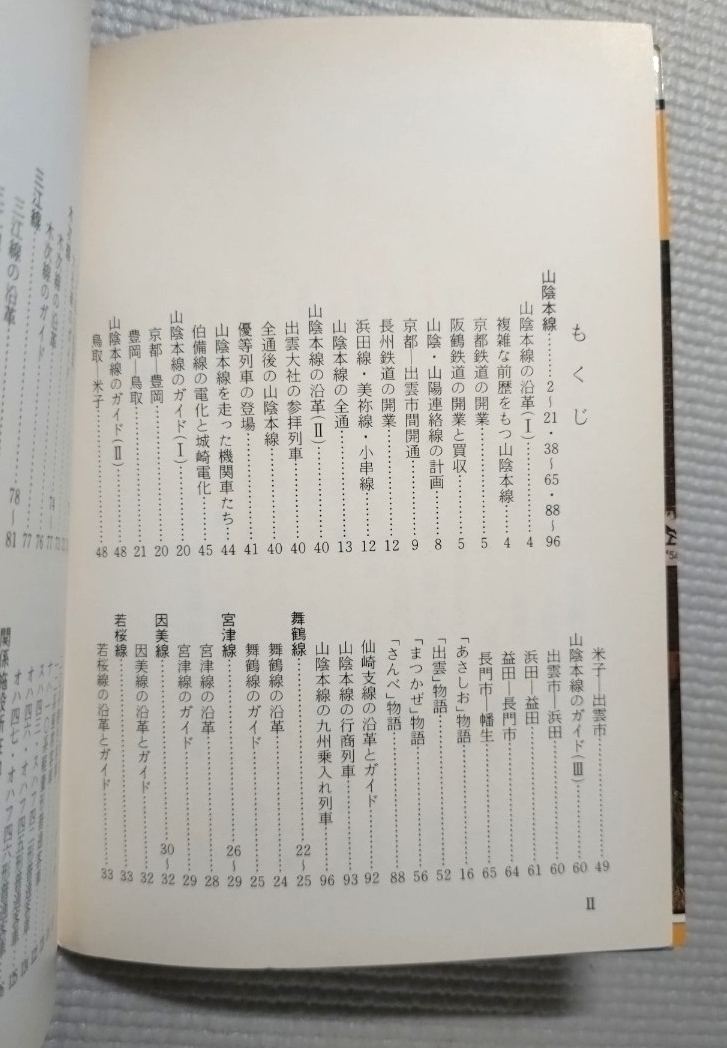 もくじ
山陰本線………2〜21・38〜65・88〜96
山陰本線の沿革(Ⅰ)……4
複雑な前歴をもつ山陰本線……4
京都鉄道の開業……5
阪鶴鉄道の開業と買収……5
山陰・山陽連絡線の計画……8
京都―出雲市間開通……9
長州鉄道の開業……12
浜田線・美祢線・小串線……12
山陰本線の全通……13
山陰本線の沿革(Ⅱ)……40
出雲大社の参拝列車……40
全通後の山陰本線……40
優等列車の登場……41
山陰本線を走った機関車たち……44
伯備線の電化と城崎電化……45
山陰本線のガイド(Ⅰ)……20
京都―豊岡……20
豊岡―鳥取……21
山陰本線のガイド(Ⅱ)……48
鳥取―米子……48
米子―出雲市……49
山陰本線のガイド(Ⅲ)……60
出雲市―浜田……60
浜田―益田……61
益田―長門市……64
長門市―幡生……65
「あさしお」物語……16
「出雲」物語……52
「まつかぜ」物語……56
「さんべ」物語……88
仙崎支線の沿革とガイド……92
山陰本線の行商列車……93
山陰本線の九州乗入れ列車……96
舞鶴線……22〜25
舞鶴線の沿革……24
舞鶴線のガイド……25
宮津線……26〜29
宮津線の沿革……28
宮津線のガイド……29
因美線……30〜32
因美線の沿革とガイド……32
若桜線……33
若桜線の沿革とガイド……33
Ⅱ
木次線のガイ
三江線……
三江線の沿革……77
78〜81